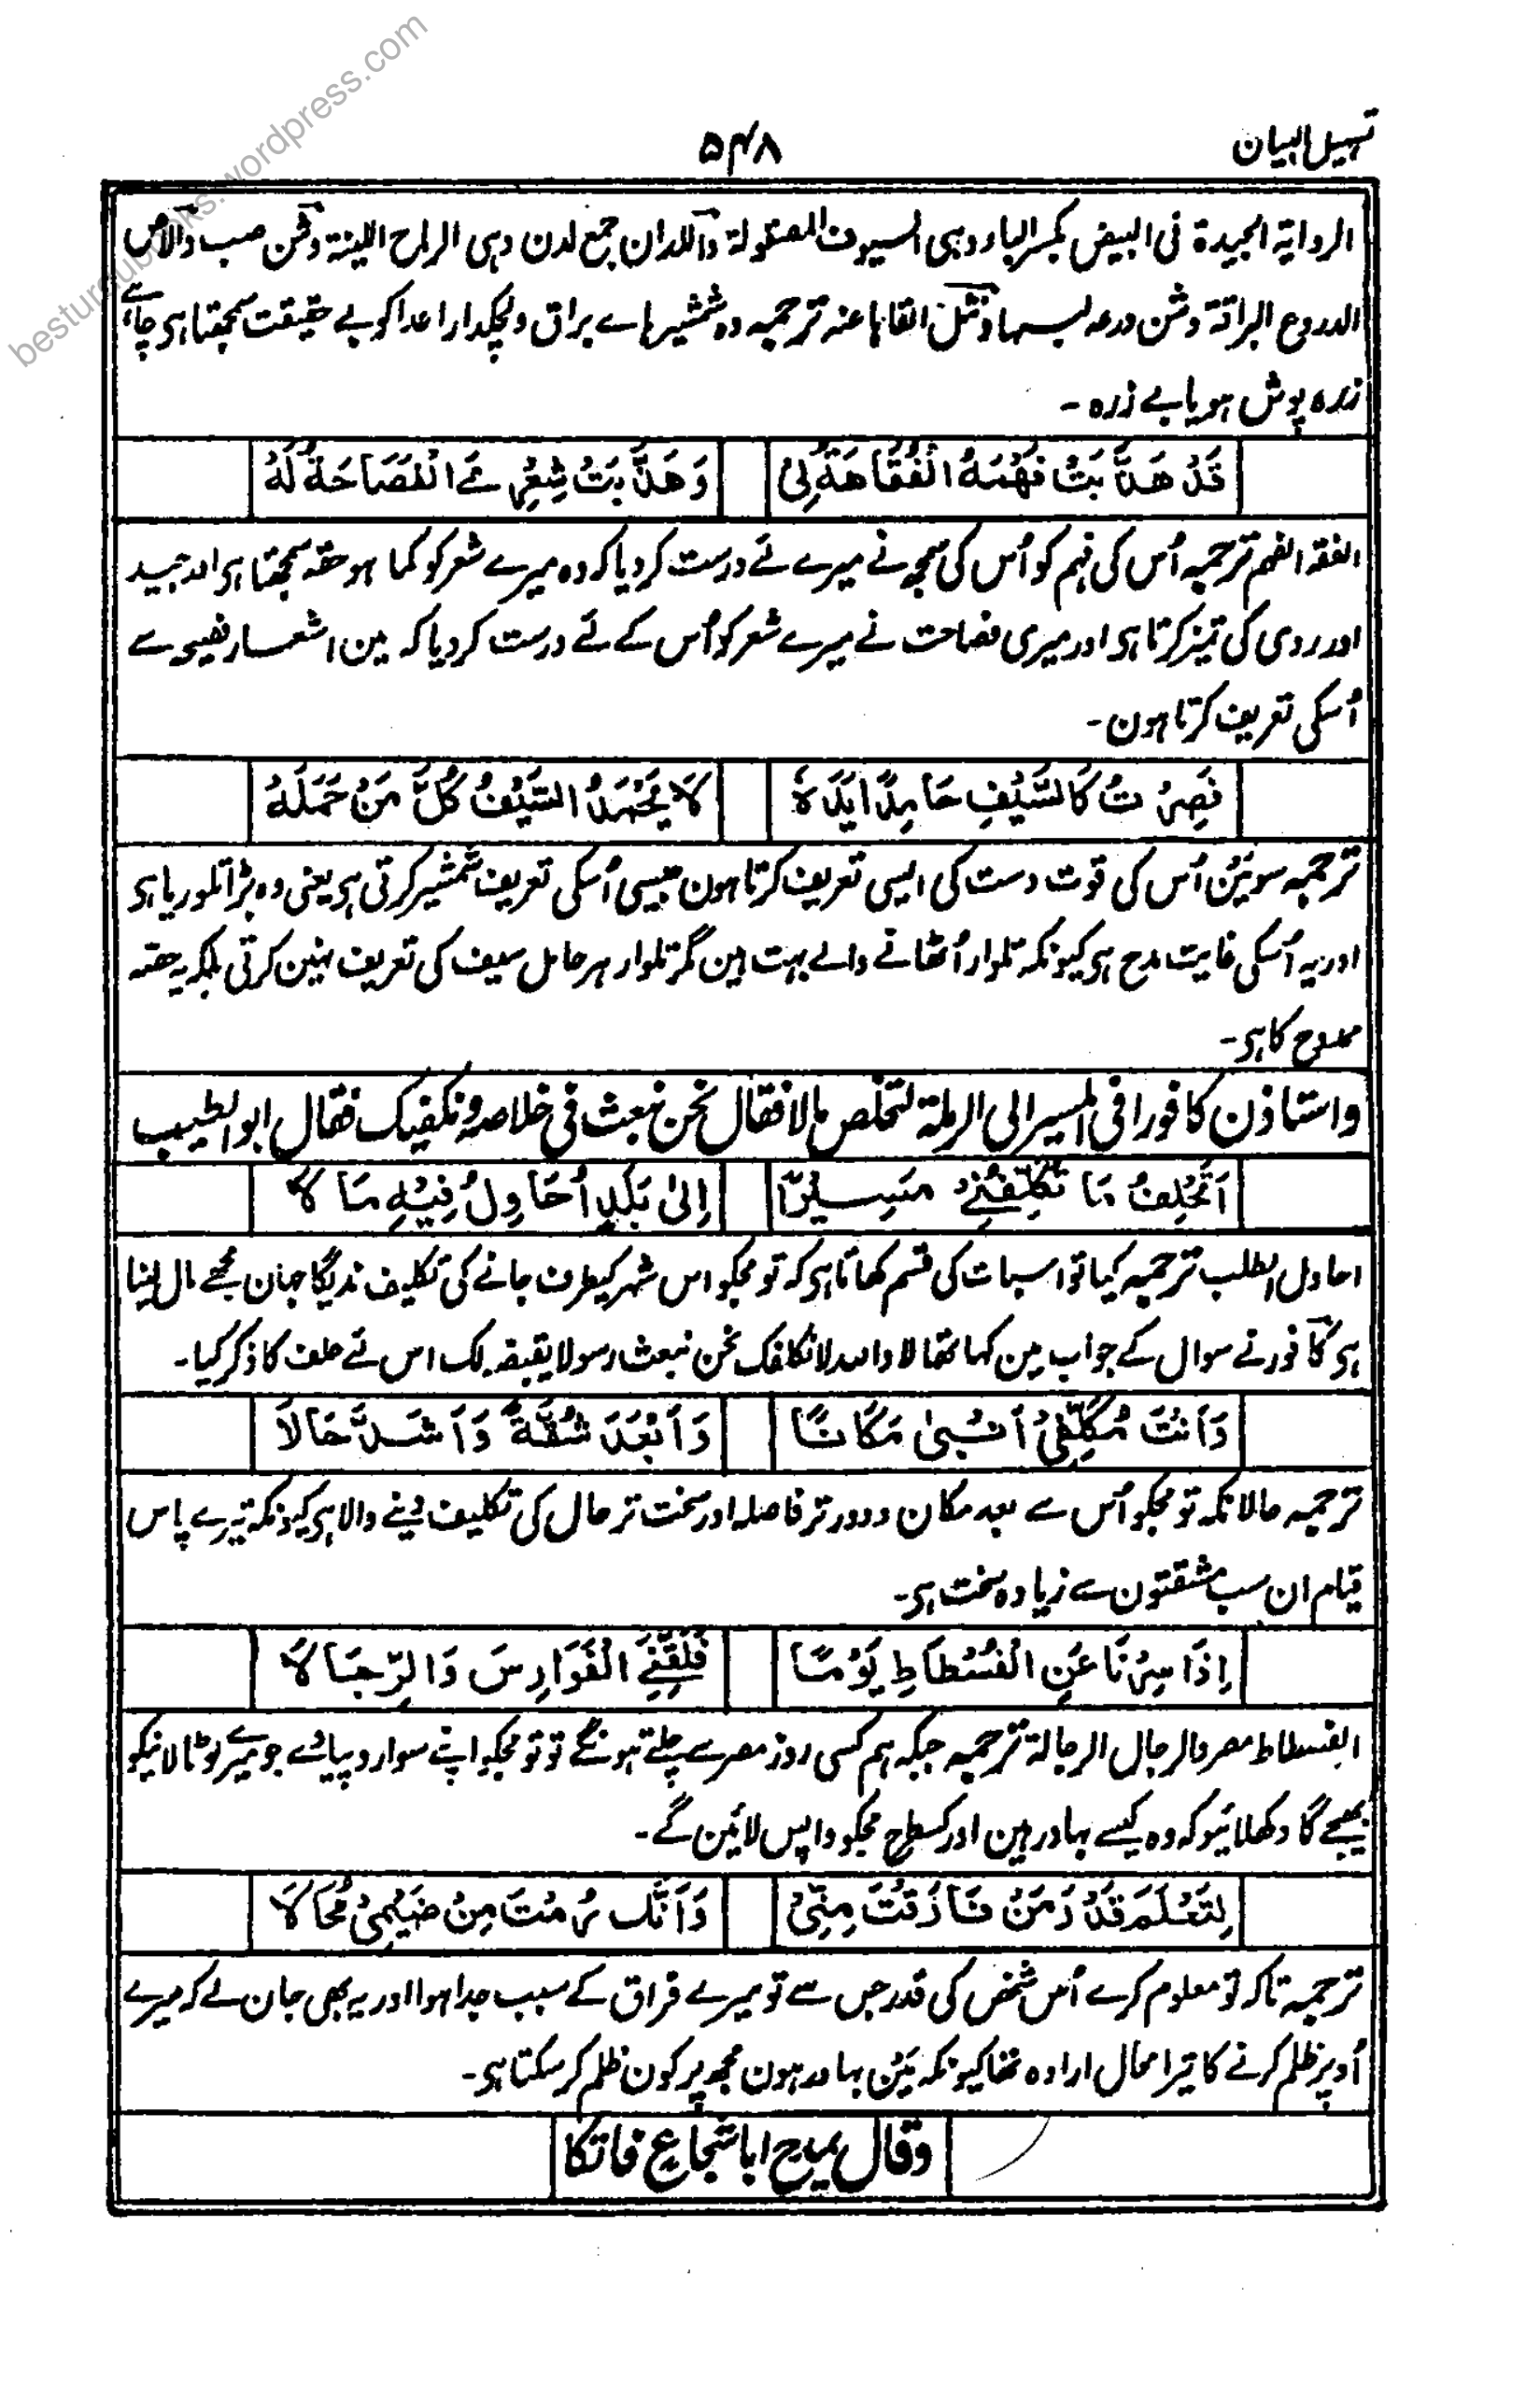 تسہیل البیان
۵۴۸
الروایۃ الجیدۃ فی البیض بکسر الباء وہی السیوف المصقولۃ واللدان جمع لدن وہی الرماح اللینۃ وشن صب والاص
الدروع البراقۃ وشن درعہ لبسہا ونثل القاہا عنہ ترجمہ وہ شمشیر ہاے براق ولچکدار اعدا کو بے حقیقت سمجھتا ہی چاہے
زرہ پوش ہو یا بے زرہ -
قَدْ هَذَّبَتْ فَهْمَهُ الْفَقَاهَةُ لِیْ
وَهَذَّبَتْ شِعْرِیَ الْفَصَاحَةُ لَهُ
الفقہ الفہم ترجمہ اُس کی فہم کو اُس کی سمجھ نے میرے لئے درست کر دیا کہ وہ میرے شعر کو کما ہو حقہ سمجھتا ہی اور جید
اور ردی کی تمیز کرتا ہی اور میری فصاحت نے میرے شعر کو اُس کے لئے درست کر دیا کہ مین اشعار فصیحہ سے
اُسکی تعریف کرتا ہون -
فَصِرْتُ كَالسَّيْفِ حَامِدًا يَدَهُ
لَا يَحْمَدُ السَّيْفُ كُلَّ مَنْ حَمَلَهُ
ترجمہ سو مَین اُس کی قوت دست کی ایسی تعریف کرتا ہون جیسی اُسکی تعریف شمشیر کرتی ہی یعنی وہ بڑا تلوریا ہی
اور یہ اُسکی غایت مدح ہی کیونکہ تلوار اُٹھانے والے بہت ہین مگر تلوار ہر حامل سیف کی تعریف نہین کرتی بلکہ یہ حقہ
ممدوح کا ہی -
واستاذن کافورا فی المسیر الی الرملۃ لتخلص مالا فقال نحن نبعث فی خلاصہ ونکفیک فقال ابو الطیب
اَتَحْلِفُ مَا تُكَلِّفُنِيْ مَسِيْرًا
اِلیٰ بَلَدٍ اُحَاوِلُ فِيْهِ مَا لَا
احاول اطلب ترجمہ کیا تو اسبات کی قسم کھاتا ہی کہ تو مجکو اس شہر کیطرف جانے کی تکلیف ندیگا جہان مجھے مال لینا
ہی کافور نے سوال کے جواب مین کہا تھا لا واللہ لا نکلفک نحن نبعث رسولا یقبضہ لک اس لئے حلف کا ذکر کیا -
وَاَنْتَ مُكَلِّفِیْ اَنْبیٰ مَكَانًا
وَاَبْعَدَ شُقَّةً وَاَشَدَّ حَالَا
ترجمہ حالانکہ تو مجکو اُس سے بعید مکان و دور تر فاصلہ اور سخت تر حال کی تکلیف دینے والا ہی کیونکہ تیرے پاس
قیام ان سب مشقتون سے زیادہ سخت ہی -
اِذَا سِرْنَا عَنِ الْفُسْطَاطِ يَوْمًا
فَلَقِّنِيْ الْفَوَارِسَ وَالرِّجَالَا
الفسطاط مصر والرجال الرجالۃ ترجمہ جبکہ ہم کسی روز مصر سے چلتے ہونگے تو تو مجکو اپنے سوار و پیادے جو میرے لوٹا لانیکو
بھیجے گا دکھلائیو کہ وہ کیسے بہادر ہین اور کسطرح مجکو واپس لائین گے -
لِتَعْلَمَ قَدْرَ مَنْ فَارَقْتَ مِنِّیْ
وَاَنَّكَ رُمْتَ مِنْ ضَيْمِیْ مُحَالَا
ترجمہ تاکہ تو معلوم کرے اُس شخص کی قدر جس سے تو میرے فراق کے سبب جدا ہوا اور یہ بھی جان لے کہ میرے
اُوپر ظلم کرنے کا تیرا محال ارادہ تھا کیونکہ مَین بہادر ہون مجھ پر کون ظلم کر سکتا ہی -
وقال یمدح ابا شجاع فاتکا
besturdubooks.wordpress.com